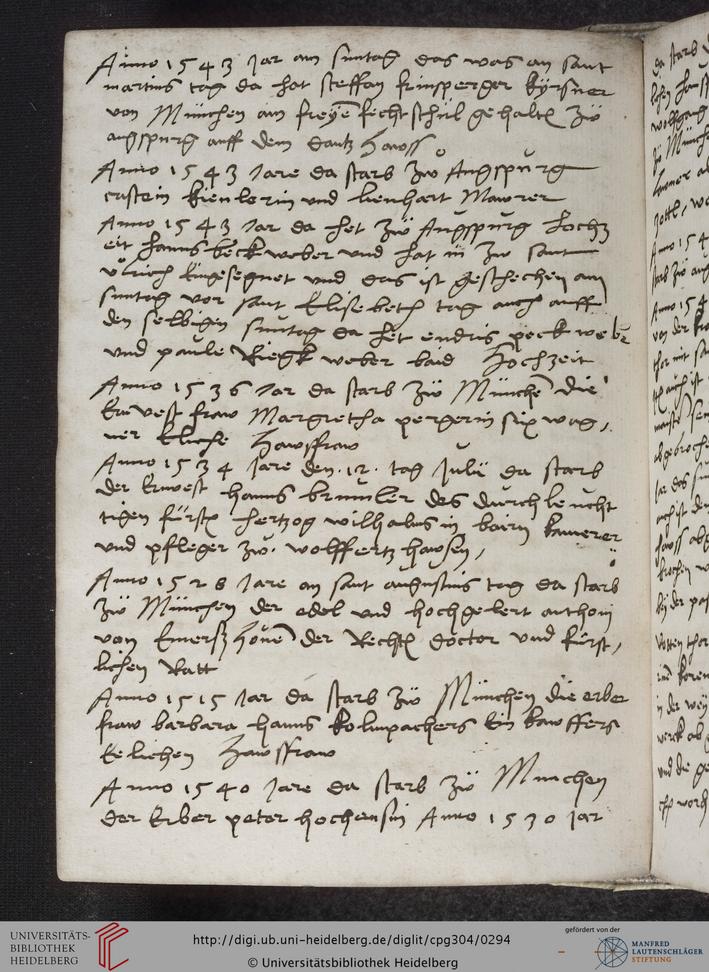 Anno 1543 Jar am suntag das was an sant
martins tag da hat steffan frinsperger kyrsner
von München ain freÿe fecht schul gehaltē zw
augspurg auff dem dantz hawss
Anno 1543 Jare da starb zw Augspurg
cristein kienlerin und lienhart Mawrer
Anno 1543 Jar da het zw Augspurg hochz
eit hanns beck weber und hat in zw sant
ulrich eingesegnet und das ist geschechen am
suntag vor sant Elisebeth tag auch auff
den selbigen suntag da het endris peck weber
und paule Riegk weber baid Hochzeit
Anno 1536 Jar da starb zw München die
Ernvest fraw Margretha pergerin six wag,
ner Eliche Hawsfraw
Anno 1534 Jare den .12. tag Julii da starb
der Ernvest hanns der durchleucht
tigen fürstn hertzog wilhalms in bairn kamerer
und pfleger zw. wolffertzhawsen,
Anno 1528 Jare an sant augustins tag da starb
zw München der edel und hochgelert anthoni
von der Rechtn doctor und fürst,
lichen Ratt
Anno 1515 Jar da starb zw München die erber
fraw barbara hanns kolmpachers Ein kawffers
Eelichen Hawsfraw
Anno 1540 Jare da starb zw Munchen
der Erber peter Anno 1530 Jar
UNIVERSITÄTS-
BIBLIOTHEK
HEIDELBERG
http://digi.ub.uni-heidelberg.de/diglit/cpg304/0294
© Universitätsbibliothek Heidelberg
gefördert von der
MANFRED
LAUTENSCHLÄGER
STIFTUNG